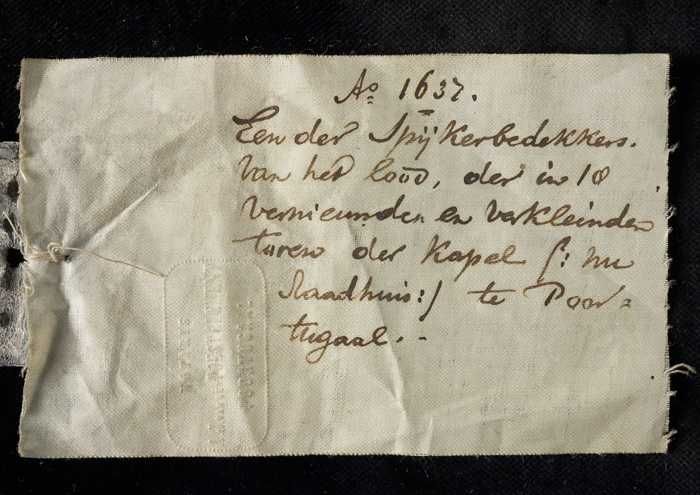 Ao 1637.
Een der Spijkerbedekkers.
van het lood, der in 18
vernieuwden en verkleinden
toren der Kapel /: nu
Raadhuis:/ te Poor-
tugaal.
NOTARIS
POORTUGAAL